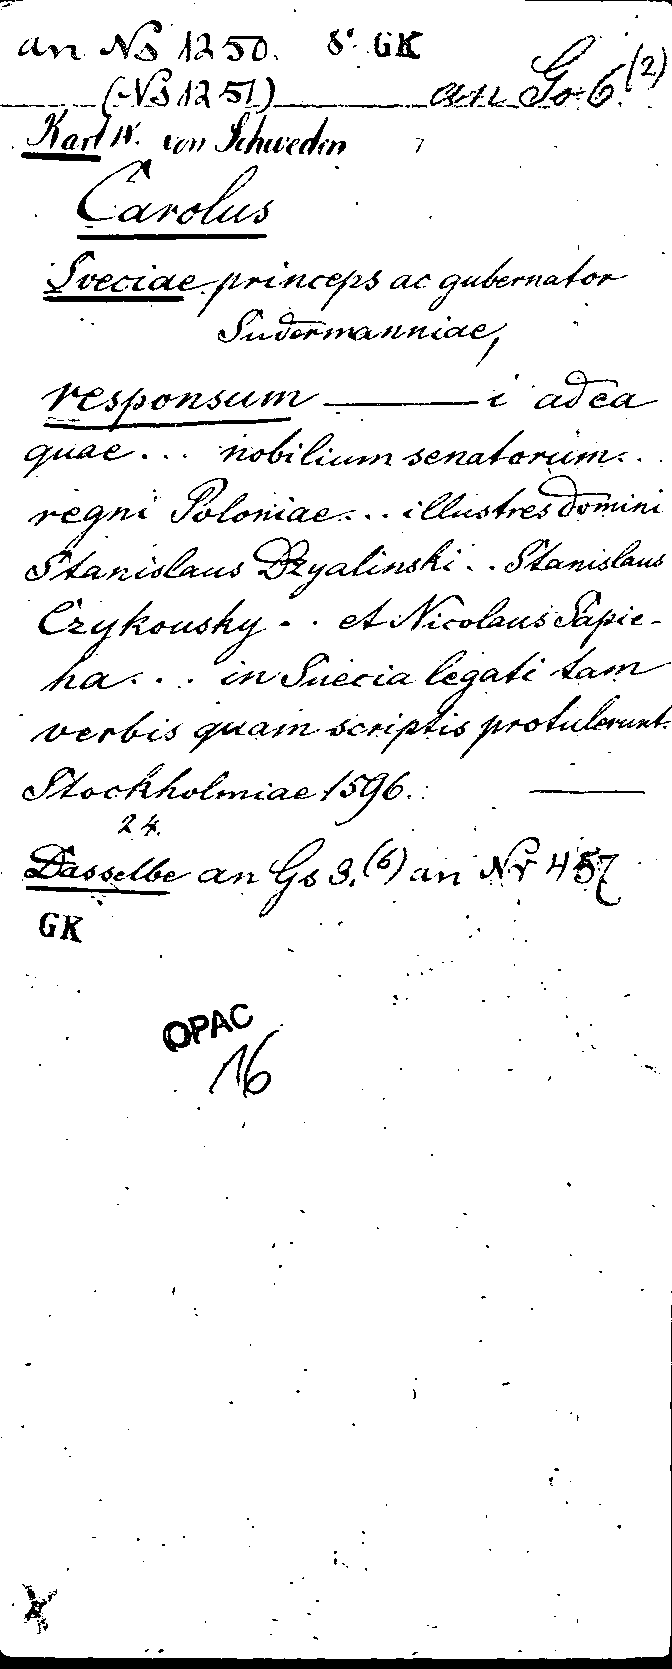 an Ns 1250. 8° GK
(Ns 1251) an Go 6.(2)
Karl IX. von Schweden
Carolus
Sveciae princeps ac gubernator
Sudermanniae,
responsum ——— i ad ea
quae ... nobilium senatorum...
regni Poloniae... illustres domini
Stanislaus Dzyalinski .. Stanislaus
Czykousky .. et Nicolaus Sapie-
ha .... in Suecia legati tam
verbis quam scriptis protulerunt.
Stockholmiae 1596. ———
24.
Dasselbe an Gs 3.(6) an Nr 457
GK
OPAC
16